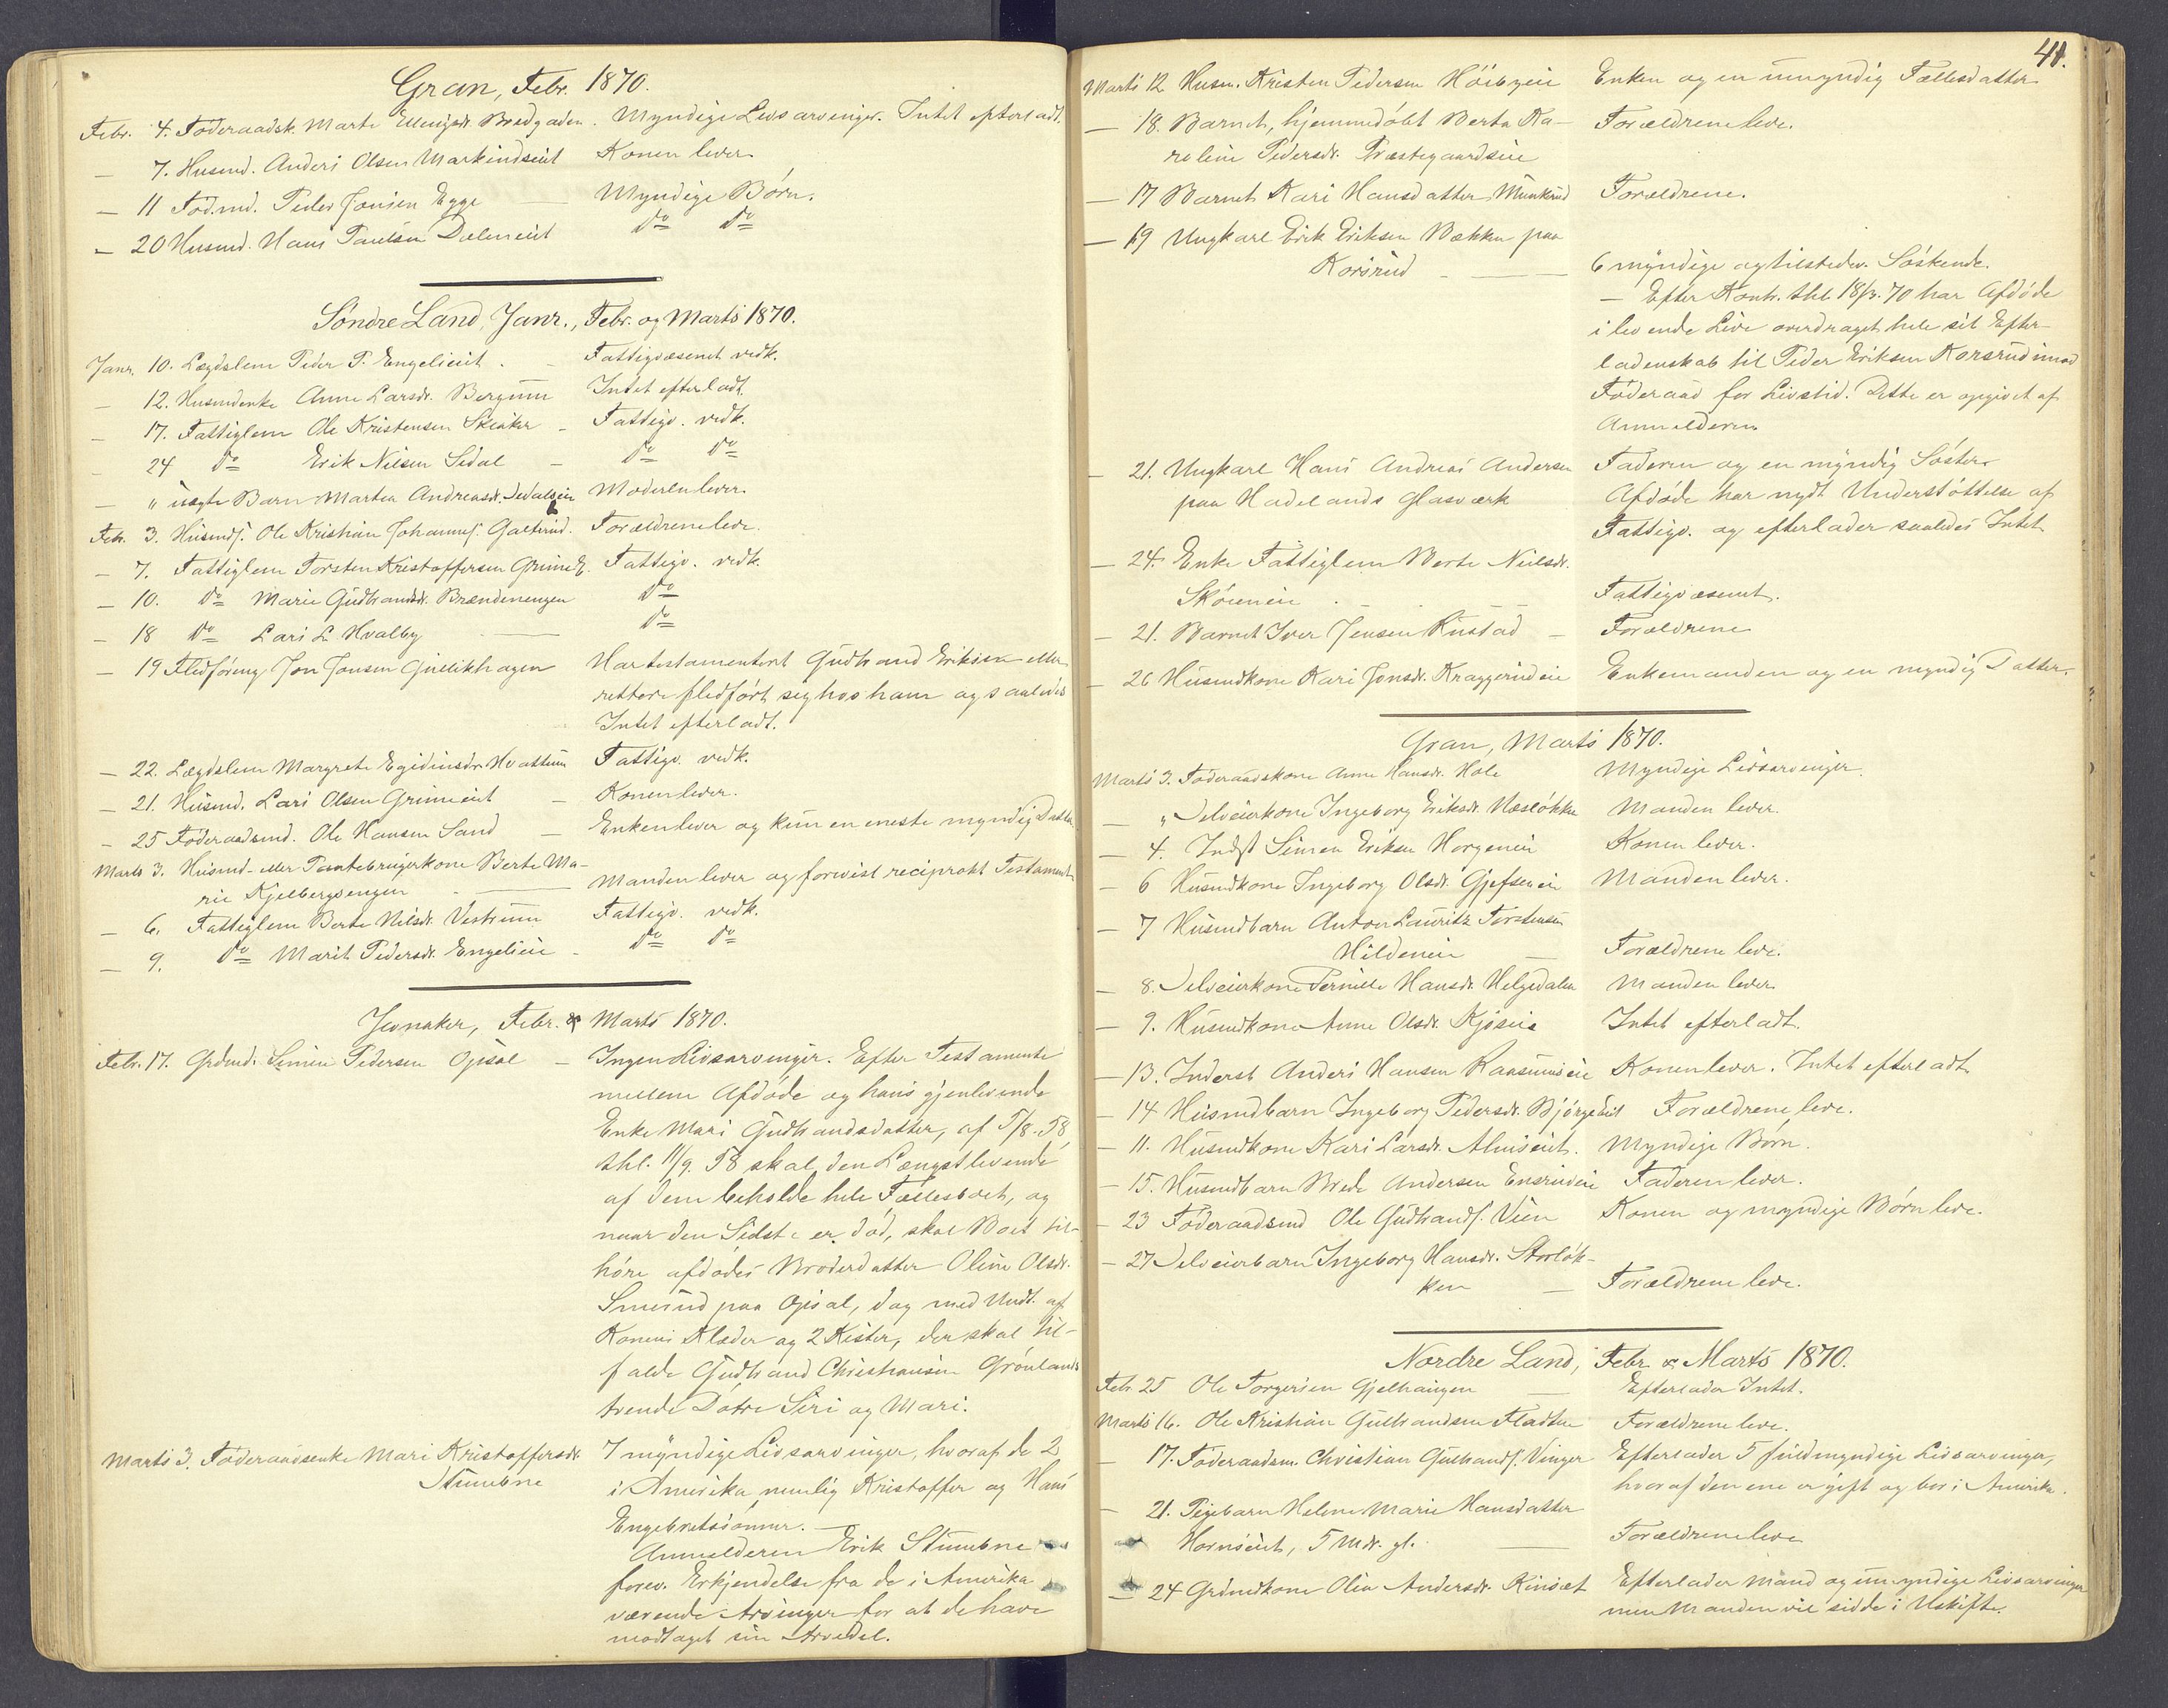 Gran, Febr. 1870.
Febr. 4. Föderaadsk. Marte Ellingsdr. Bredgaden. Myndige Livsarvinger. Intet efterladt.
— 7. Husmd. Anders Olsen Markindseiet Konen lever.
— 11 Föd.md. Peder Jonsen Egge — Myndige Børn.
— 20 Husmd. Hans Paulsen Dæleneiet Do Do
Söndre Land, Janr., Febr. og Marts 1870.
Janr. 10. Lægdslem Peder P. Engelieiet . - Fattigvæsenet vedk.
— 12. Husmdenke Anne Larsdr. Bergum Intet efterladt.
— 17. Fattiglem Ole Kristensen Skiaker - Fattigv. vedk.
— 24 Do Erik Nilsen Lidal - Do Do
— " uægte Barn Martea Andreasdr. Moderen lever.
Febr. 3. Husmds. Ole Kristian Johannes. Galterud. Forældrene leve.
— 7. Fattiglem Torsten Kristoffersen Fattigv. vedk.
— 10. Do Marie Gudbrandsdr. Brændenengen Do
— 18 Do Lars L. Hvalby — Do
— 19 Fledföring Jon Jonsen Gullikhagen Har testamenteret Gudbrand Eriksen eller
rettere fledfört seg hos ham og saaledes
Intet efterladt.
— 22. Lægdslem Margrete Egidiusdr. Hvattum Fattigv. vedk.
— 21. Husmd. Lars Olsen Grimeiet - Konen lever.
— 25 Föderaadsmd. Ole Hansen Sand — Enken lever og kun en eneste myndig Datter
Marts 3. Husmd- eller Pantebrugerkone Berte Ma-
rie Kjelbergsengen . — Manden lever og forevist reciprokt Testament
— 6. Fattiglem Berte Nilsdr. Vestrum Fattigv. vedk.
— 9. Do Marit Pedersdr. Engelieie - Do Do
Jevnaker, Febr. & Marts 1870.
Febr. 17. Grdmd. Simen Pedersen Opsal — Ingen Livsarvinger. Efter Testamente
mellem Afdöde og hans gjenlevende
Enke Mari Gudbrandsdatter, af 5/8. 58,
thl. 11/9. 58 skal den Længstlevende
af dem beholde hele Fællesboet, og
naar den Sidste er död, skal Boet til-
höre afdödes Broderdatter Oline Olsdr.
Smerud paa Opsal, dog med Undt. af
Konens Klæder og 2 Kister, der skal til-
falde Gudbrand Christiansen Grönlands
tvende Dötre Siri og Mari.
Marts 3. Föderaadsenke Mari Kristoffersdr. 7 myndige Livsarvinger, hvoraf de 2
Stuubne i Amerika nemlig Kristoffer og Hans
Engebretssönner. —
Anmelderen Erik Stuubne
forev. Erkjendelse fra de i Amerika
værende Arvinger for at de have
modtaget sin Arvedel.
41.
Marts 12. Husm. Kristen Pedersen Höibyeie Enken og en umyndig Fællesdatter
— 18. Barnet, hjemmedöbt Berta Ka- Forældrene leve.
roline Pedersdr. Præstegaardseie
— 17 Barnet Kari Hansdatter Munkerud Forældrene.
— 19 Ungkarl Erik Eriksen Bækken paa
Korsrud - — 6 myndige og tilstedev. Söskende.
— Efter Kontr. thl. 18/3. 70 har Afdöde
i levende Live overdraget hele sit Efter-
ladenskab til Peder Eriksen Korsrud imod
Föderaad for Livstid. Dette er opgivet af
Anmelderen
— 21. Ungkarl Hans Andreas Andersen Faderen og en myndig Söster.
paa Hadelands Glasværk Afdöde har nydt Understöttelse af
Fattigv. og efterlader saaledes Intet
— 24. Enke Fattiglem Berte Nielsdr.
Sköieneie . - - Fattigvæsenet.
— 21. Barnet Iver Jensen Rustad — Forældrene
— 26 Husmdkone Kari Jonsdr. Kraggerudeie Enkemanden og en myndig Datter.
Gran, Marts 1870.
Marts 3. Föderaadskone Anne Hansdr. Hole Myndige Livsarvinger.
— " Selveierkone Ingeborg Eriksdr. Næslökken Manden lever.
— 4. Indst Simen Eriksen Horgeneie Konen lever.
— 6 Husmdkone Ingeborg Olsdr. Gjefseneie Manden lever.
— 7 Husmdbarn Anton Lauritz Torstensen
Hildeneie — Forældrene leve.
— 8. Selveierkone Pernille Hansdr. Helgedalen Manden lever.
— 9. Husmdkone Anne Olsdr. Kjöseie Intet efterladt.
— 13. Inderst Anders Hansen Raasumseie Konen lever. Intet efterladt.
— 14 Husmdbarn Ingeborg Pedersdr. Forældrene leve.
— 11. Husmdkone Kari Larsdr. Almseiet. Myndige Børn.
— 15. Husmdbarn Brede Andersen Ensrudeie Faderen lever.
— 23 Föderaadsmd Ole Gudbrands. Vien Konen og myndige Börn leve.
— 27 Selveierbarn Ingeborg Hansdr. Storlök-
ken — Forældrene leve.
Nordre Land, Febr. & Marts 1870.
Febr. 25 Ole Torgersen Gjelhaugen — Efterlader Intet.
Marts 16. Ole Kristian Gulbrandsen Fladtun Forældrene leve.
— 17. Föderaadsm. Christian Gulbrands. Vinger Efterlader 5 fuldmyndige Livsarvinger,
hvoraf den ene er gift og bor i Amerika.
— 21. Pigebarn Helene Marie Hansdatter
Hornseiet, 5 Mdr. gl. — Forældrene leve
— 24 Grdmdkone Olea Andersdr. Rinsæt Efterlader Mand og umyndige Livsarvinger
men Manden vil sidde i Uskifte.